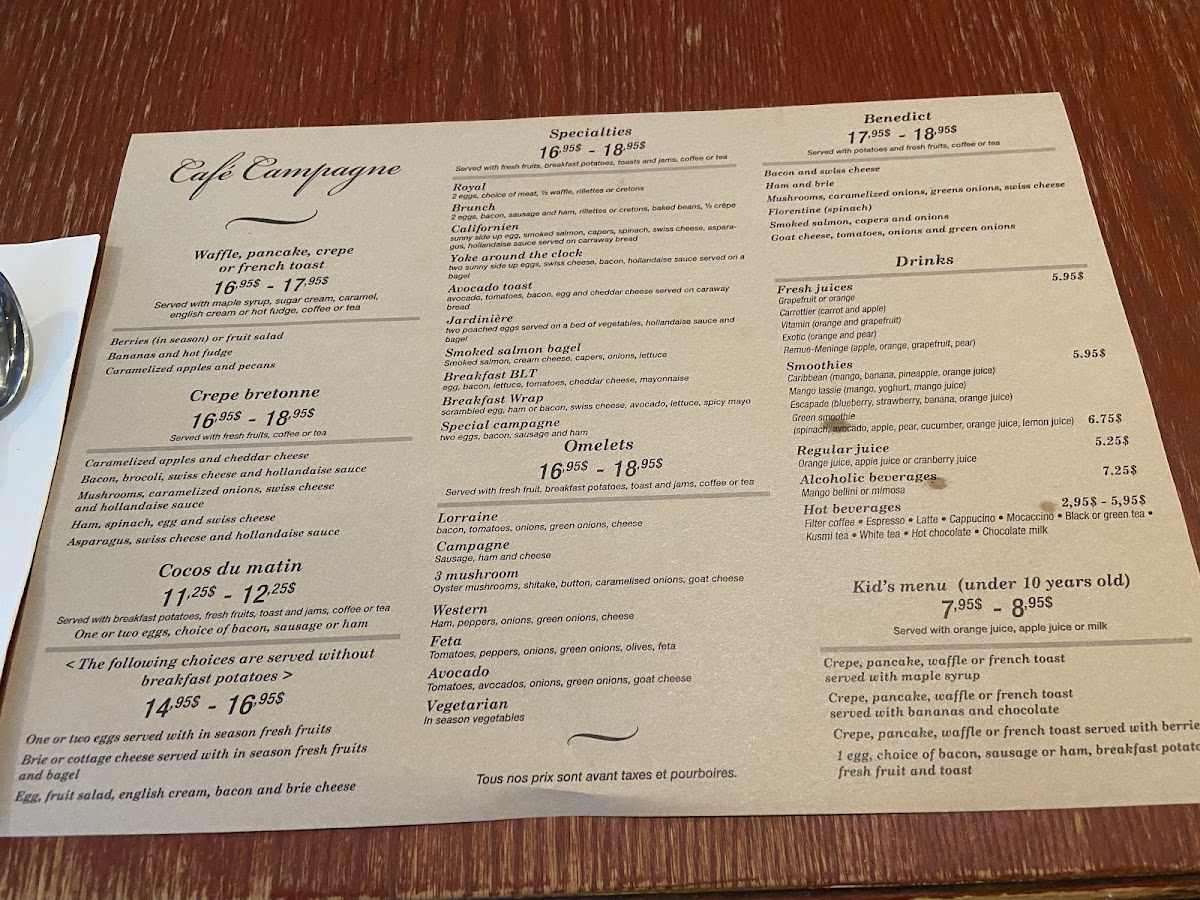 Café Campagne
Waffle, pancake, crepe
or french toast
16,95$ - 17,95$
Served with maple syrup, sugar cream, caramel,
english cream or hot fudge, coffee or tea
Berries (in season) or fruit salad
Bananas and hot fudge
Caramelized apples and pecans
Crepe bretonne
16,95$ - 18,95$
Served with fresh fruits, coffee or tea
Caramelized apples and cheddar cheese
Bacon, brocoli, swiss cheese and hollandaise sauce
Mushrooms, caramelized onions, swiss cheese
and hollandaise sauce
Ham, spinach, egg and swiss cheese
Asparagus, swiss cheese and hollandaise sauce
Cocos du matin
11,25$ - 12,25$
Served with breakfast potatoes, fresh fruits, toast and jams, coffee or tea
One or two eggs, choice of bacon, sausage or ham
< The following choices are served without
breakfast potatoes >
14,95$ - 16,95$
One or two eggs served with in season fresh fruits
Brie or cottage cheese served with in season fresh fruits
and bagel
Egg, fruit salad, english cream, bacon and brie cheese
Specialties
16,95$ - 18,95$
Served with fresh fruits, breakfast potatoes, toasts and jams, coffee or tea
Royal
2 eggs, choice of meat, ½ waffle, rillettes or cretons
Brunch
2 eggs, bacon, sausage and ham, rillettes or cretons, baked beans, ½ crêpe
Californien
sunny side up egg, smoked salmon, capers, spinach, swiss cheese, aspara-
gus, hollandaise sauce served on carraway bread
Yoke around the clock
two sunny side up eggs, swiss cheese, bacon, hollandaise sauce served on a
bagel
Avocado toast
avocado, tomatoes, bacon, egg and cheddar cheese served on caraway
bread
Jardinière
two poached eggs served on a bed of vegetables, hollandaise sauce and
bagel
Smoked salmon bagel
Smoked salmon, cream cheese, capers, onions, lettuce
Breakfast BLT
egg, bacon, lettuce, tomatoes, cheddar cheese, mayonnaise
Breakfast Wrap
scrambled egg, ham or bacon, swiss cheese, avocado, lettuce, spicy mayo
Special campagne
two eggs, bacon, sausage and ham
Omelets
16,95$ - 18,95$
Served with fresh fruit, breakfast potatoes, toast and jams, coffee or tea
Lorraine
bacon, tomatoes, onions, green onions, cheese
Campagne
Sausage, ham and cheese
3 mushroom
Oyster mushrooms, shitake, button, caramelised onions, goat cheese
Western
Ham, peppers, onions, green onions, cheese
Feta
Tomatoes, peppers, onions, green onions, olives, feta
Avocado
Tomatoes, avocados, onions, green onions, goat cheese
Vegetarian
In season vegetables
Tous nos prix sont avant taxes et pourboires.
Benedict
17,95$ - 18,95$
Served with potatoes and fresh fruits, coffee or tea
Bacon and swiss cheese
Ham and brie
Mushrooms, caramelized onions, greens onions, swiss cheese
Florentine (spinach)
Smoked salmon, capers and onions
Goat cheese, tomatoes, onions and green onions
Drinks
Fresh juices 5.95$
Grapefruit or orange
Carrottier (carrot and apple)
Vitamin (orange and grapefruit)
Exotic (orange and pear)
Remue-Meninge (apple, orange, grapefruit, pear)
Smoothies 5.95$
Caribbean (mango, banana, pineapple, orange juice)
Mango lassie (mango, yoghurt, mango juice)
Escapade (blueberry, strawberry, banana, orange juice)
Green smoothie
(spinach, avocado, apple, pear, cucumber, orange juice, lemon juice) 6.75$
Regular juice 5.25$
Orange juice, apple juice or cranberry juice
Alcoholic beverages 7.25$
Mango bellini or mimosa
Hot beverages 2,95$ - 5,95$
Filter coffee • Espresso • Latte • Cappucino • Mocaccino • Black or green tea •
Kusmi tea • White tea • Hot chocolate • Chocolate milk
Kid's menu (under 10 years old)
7,95$ - 8,95$
Served with orange juice, apple juice or milk
Crepe, pancake, waffle or french toast
served with maple syrup
Crepe, pancake, waffle or french toast
served with bananas and chocolate
Crepe, pancake, waffle or french toast served with berrie
1 egg, choice of bacon, sausage or ham, breakfast potato
fresh fruit and toast